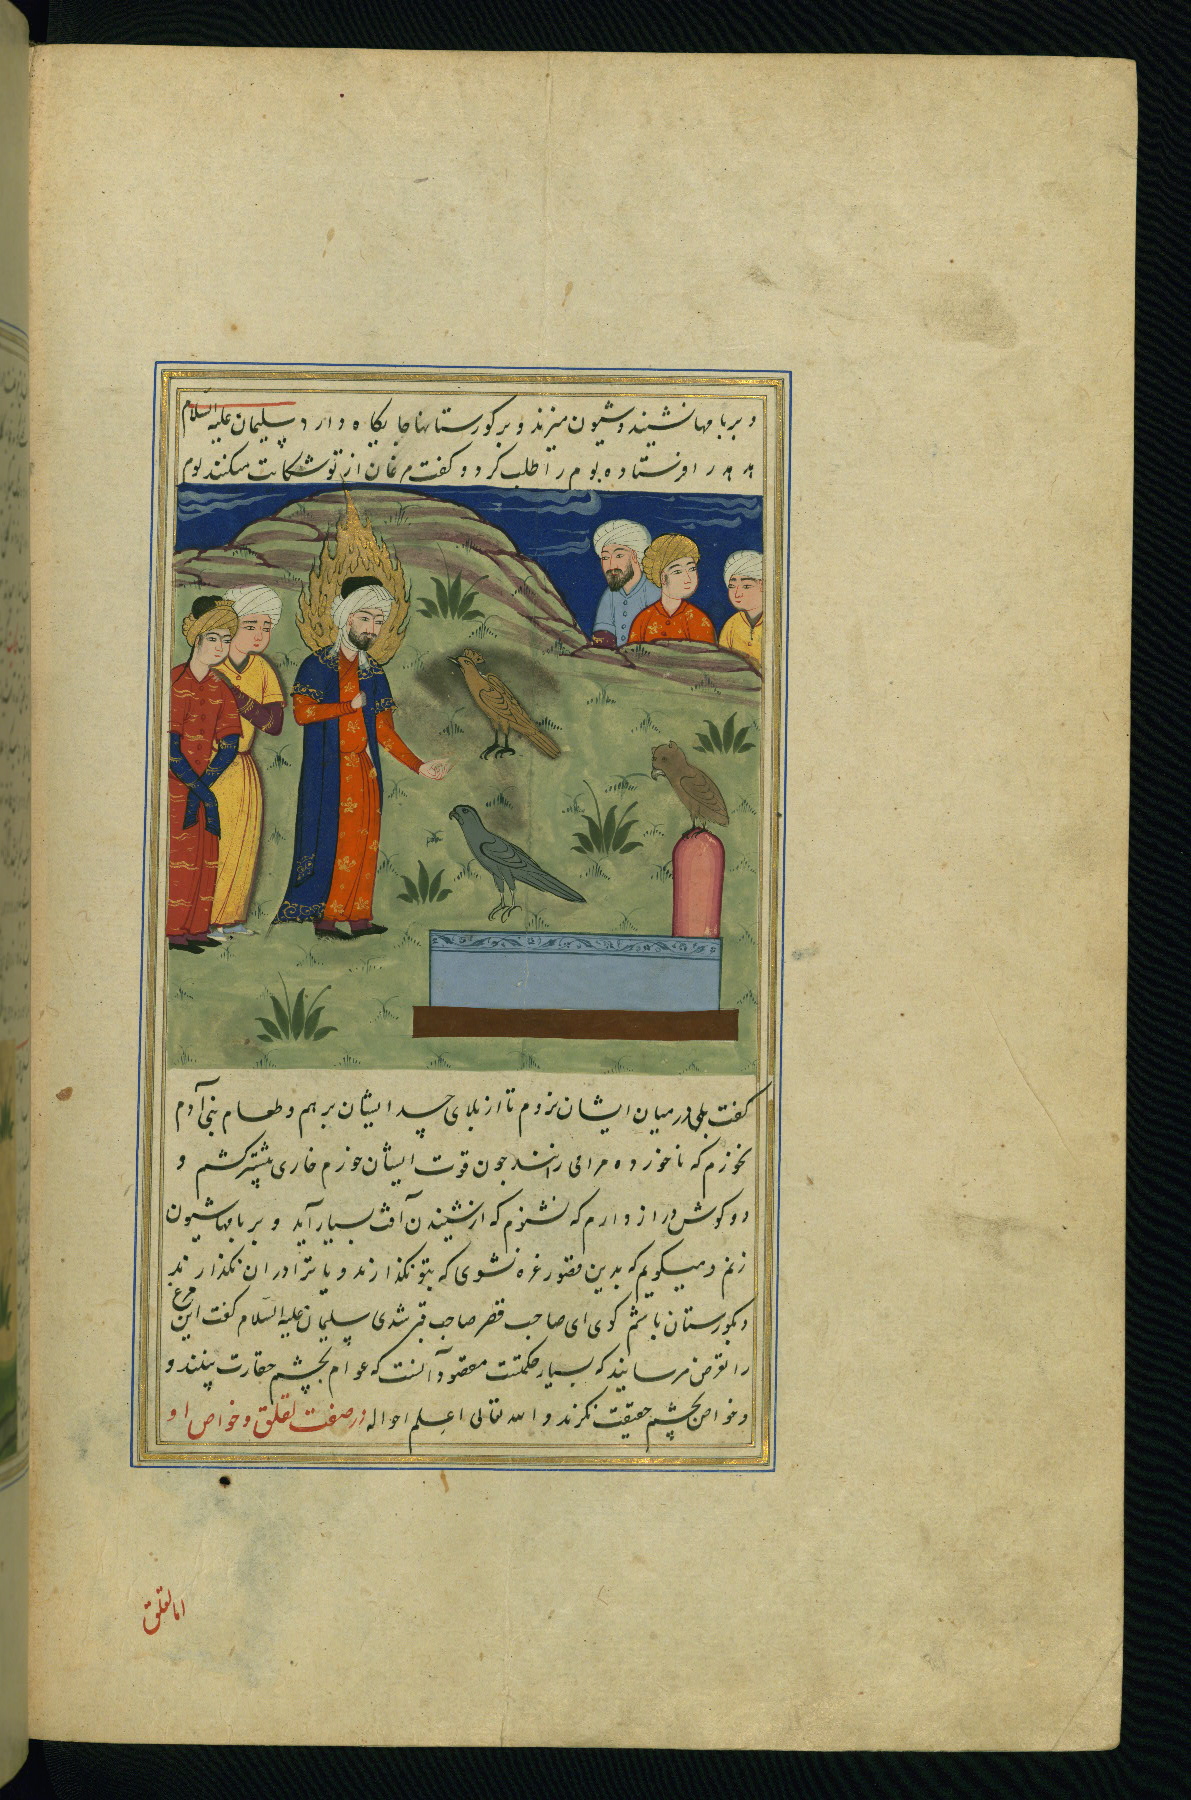 و بر بامها نشیند و شیون میزند و بر کورستانها جایکاه دارد سلیمان علیه السلام
هدهد را فرستاده بوم را طلب کرد و کفت مرغان از تو شکایت میکنند بوم
کفت بلی در میان ایشان نروم تا از بلای حسد ایشان برهم و طعام بنی آدم
نخورم که ناخورده مرا می رانند چون قوت ایشان خورم خاری بیشتر کشم و
دو کوش دراز دارم که نشنوم که از شنیدن آفت بسیار آید و بر بامها شیون
زنم و میکویم که بدین قصور غره نشوی که بتو نکذارند و یا ترا در آن نکذارند
و بکورستان باشم کوی ای صاحب قصر صاحب قبر شدی سلیمان علیه السلام کفت این مرغ
را تعرض مرسانید که بسیار حکمتست مقصود آنست که عوام بچشم حقارت بینند و
و خواص بچشم حقیقت نکرند و الله تعالی اعلم احواله در صفت لقلق و خواص او
اما لقلق